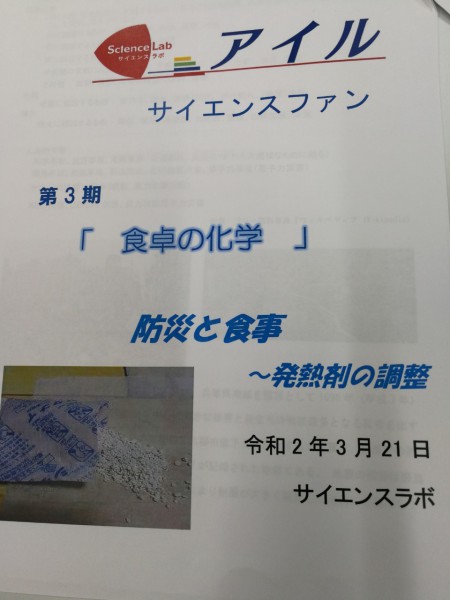 Science Lab
サイエンスラボ
アイル
サイエンスファン
第3期
「 食卓の化学 」
防災と食事
～発熱剤の調整
令和2年3月21日
サイエンスラボ